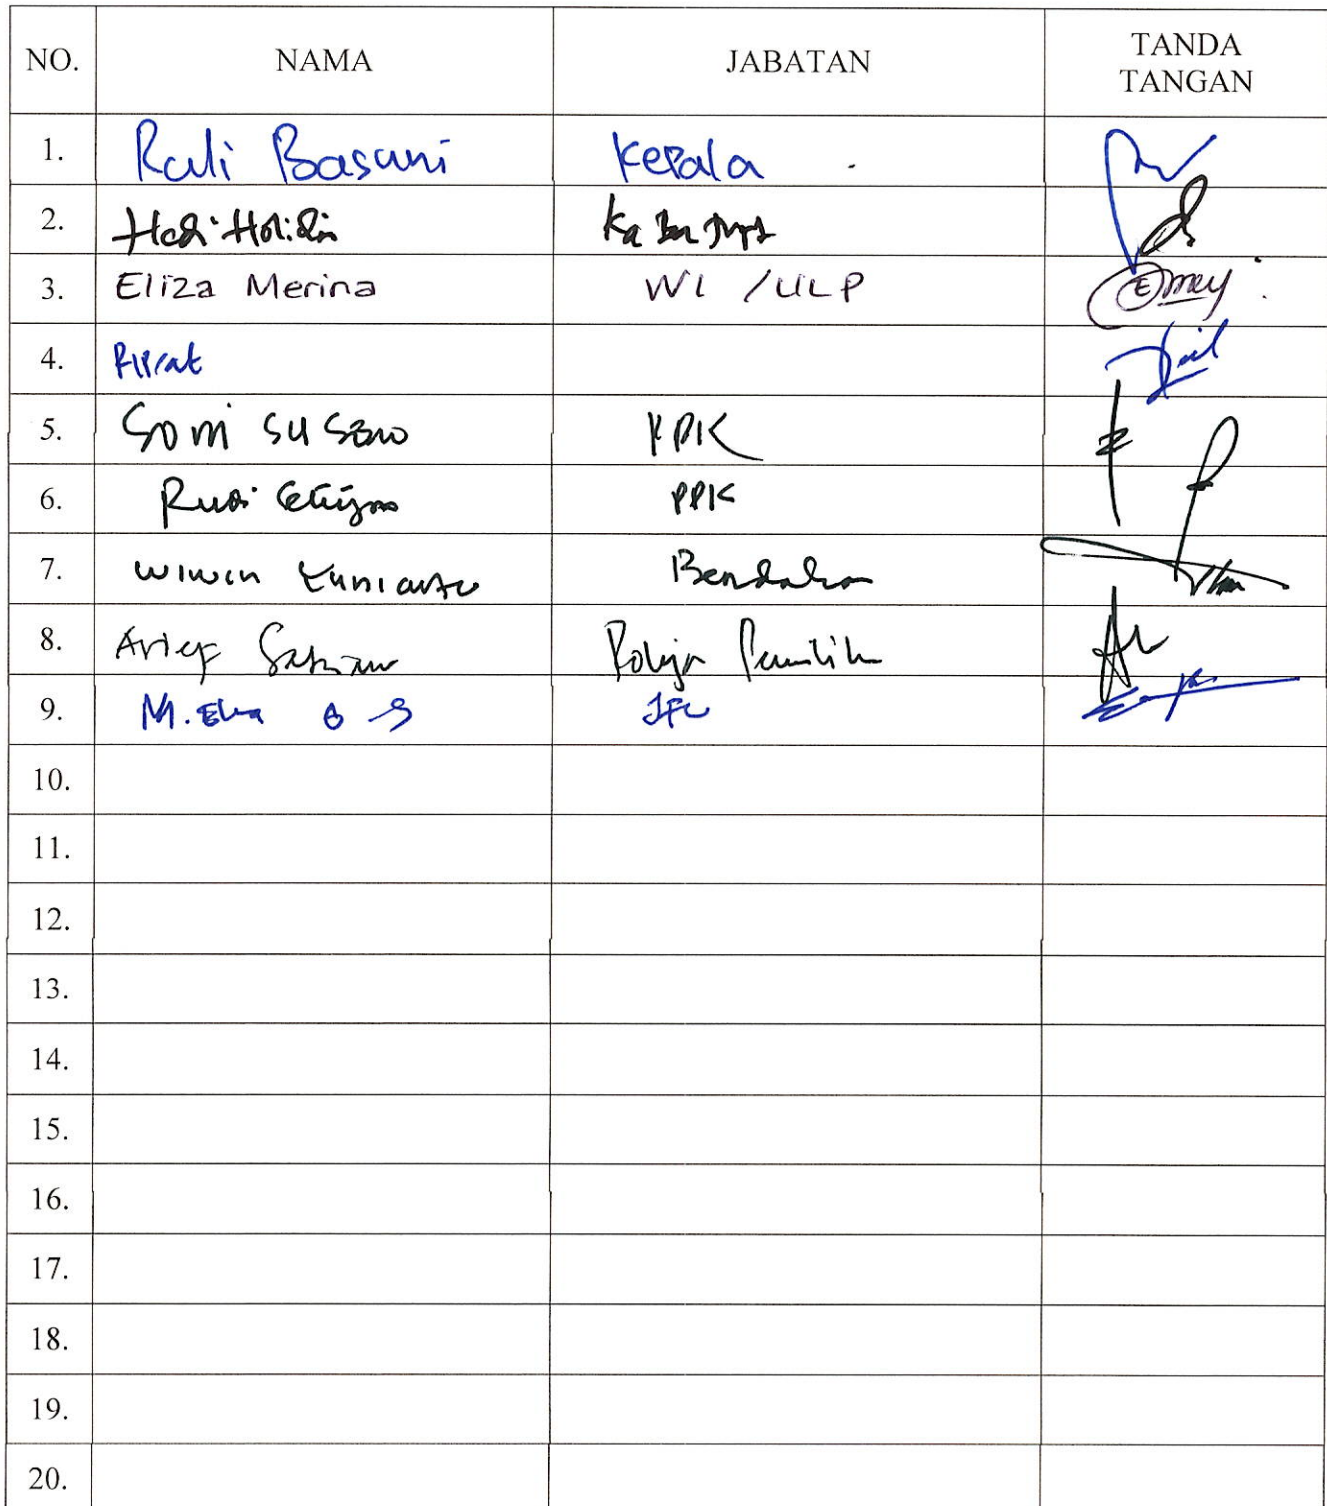 NO. NAMA JABATAN TANDA TANGAN
1. Rali Basuni Kepala
2. Hedi Holidin Ka
3. Eliza Merina WI /ULP
4.
5. Soni Suseno KPK
6. Rudi PPK
7. Wiwin Yuniarto Bendahara
8. Arief Pokja Pemilih
9. M. Eka
10.
11.
12.
13.
14.
15.
16.
17.
18.
19.
20.